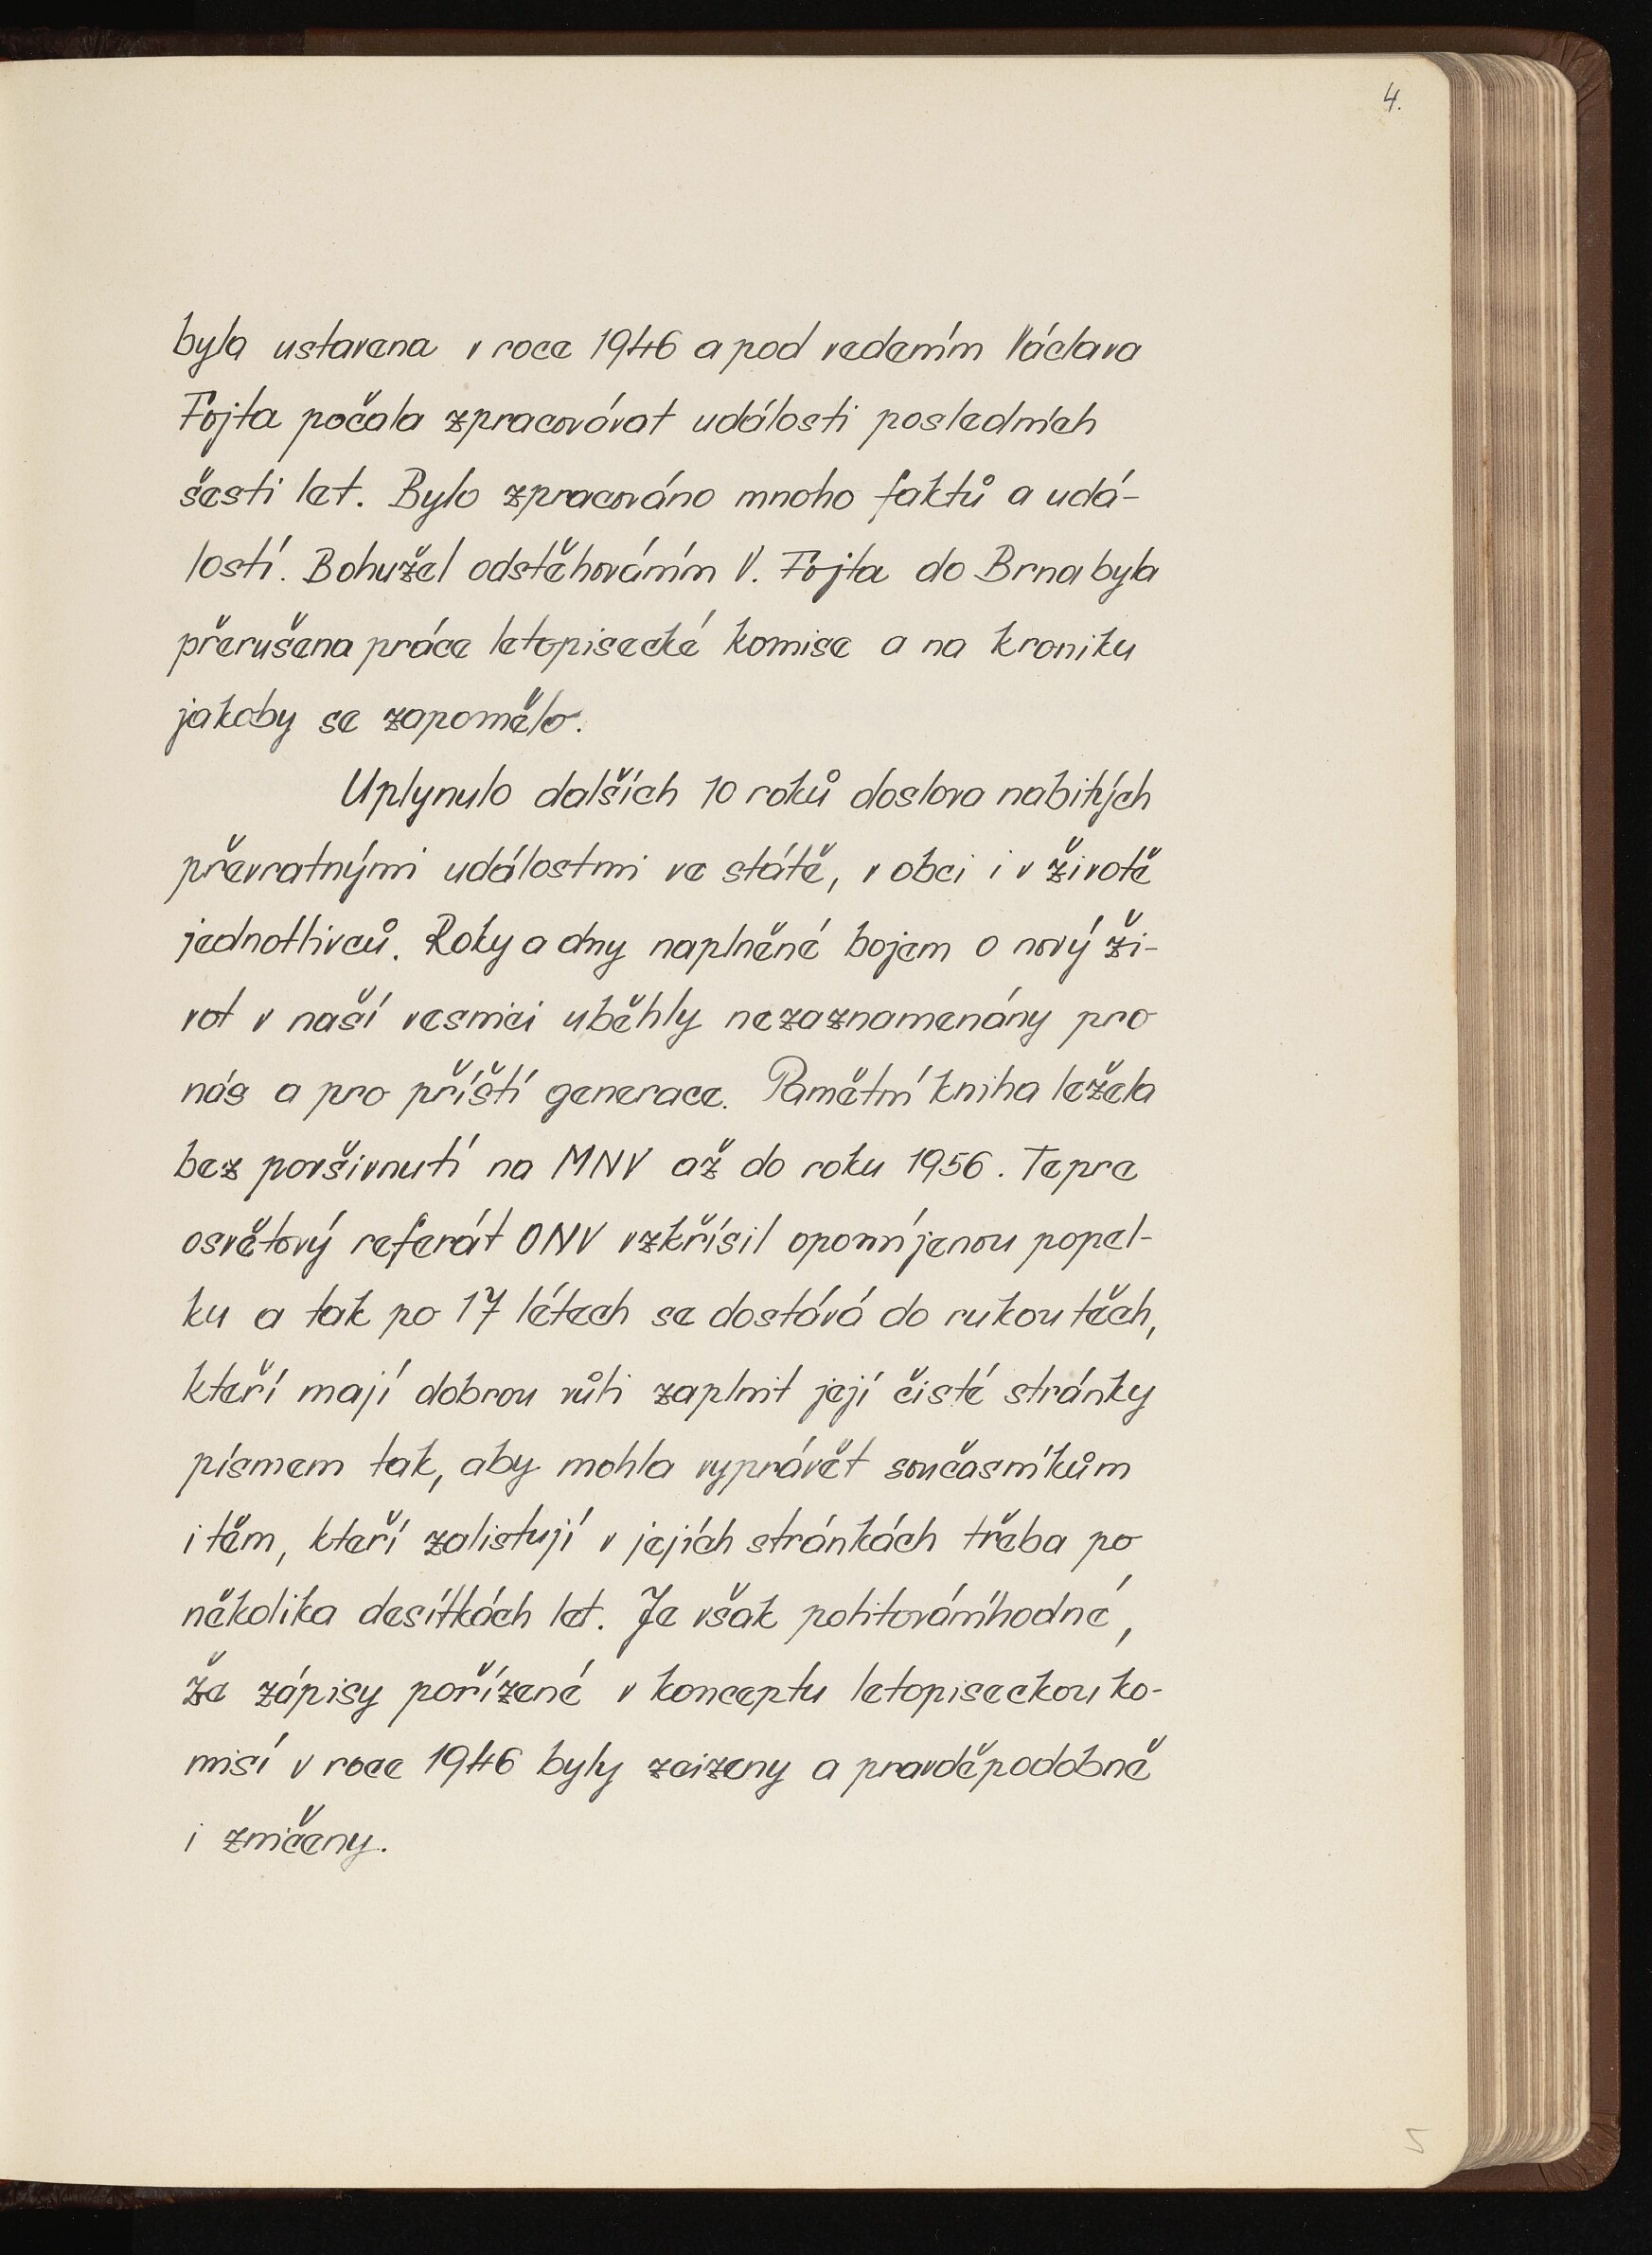 4.
byla ustavena v roce 1946 a pod vedením Václava
Fojta počala zpracovávat události posledních
šesti let. Bylo zpracováno mnoho faktů a udá-
lostí. Bohužel odstěhováním V. Fojta do Brna byla
přerušena práce letopisecké komise a na kroniku
jakoby se zapomělo.
Uplynulo dalších 10 roků doslova nabitých
převratnými událostmi ve státě, v obci i v životě
jednotlivců. Roky a dny naplněné bojem o nový ži-
vot v naší vesnici uběhly nezaznamenány pro
nás a pro příští generace. Pamětní kniha ležela
bez povšivnutí na MNV až do roku 1956. Tepre
osvětový referát ONV vzkřísil opomíjenou popel-
ku a tak po 17 létech se dostává do rukou těch,
kteří mají dobrou vůli zaplnit její čisté stránky
písmem tak, aby mohla vyprávět současníkům
i těm, kteří zalistují v jejích stránkách třeba po
několika desítkách let. Je však politováníhodné,
že zápisy pořízené v konceptu letopiseckou ko-
misí v roce 1946 byly zcizeny a pravděpodobně
i zničeny.
5